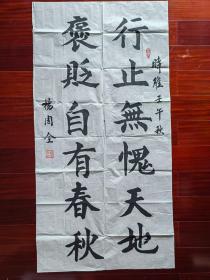 行止無愧天地
時維壬午秋
褒貶自有春秋
楊周全